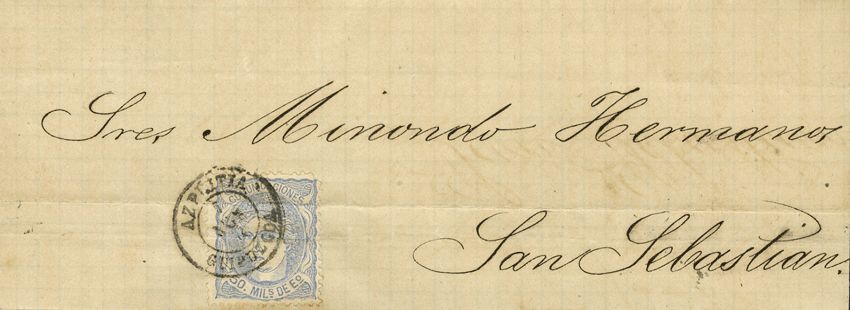 Sres Minondo Hermanos
San Sebastian.
AZPEITIA
GUIPUZCOA
COMUNICACIONES
50. MILS DE Eo